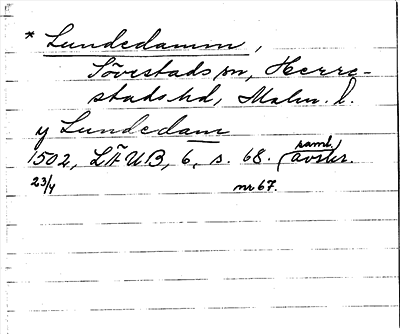 * Lundedamm,
Sövestads sn, Herre-
stads hd, Malm. l.
y Lundedam
1502, LÄUB, 6, s. 68. (saml. avskr.
23/4 nr 67.